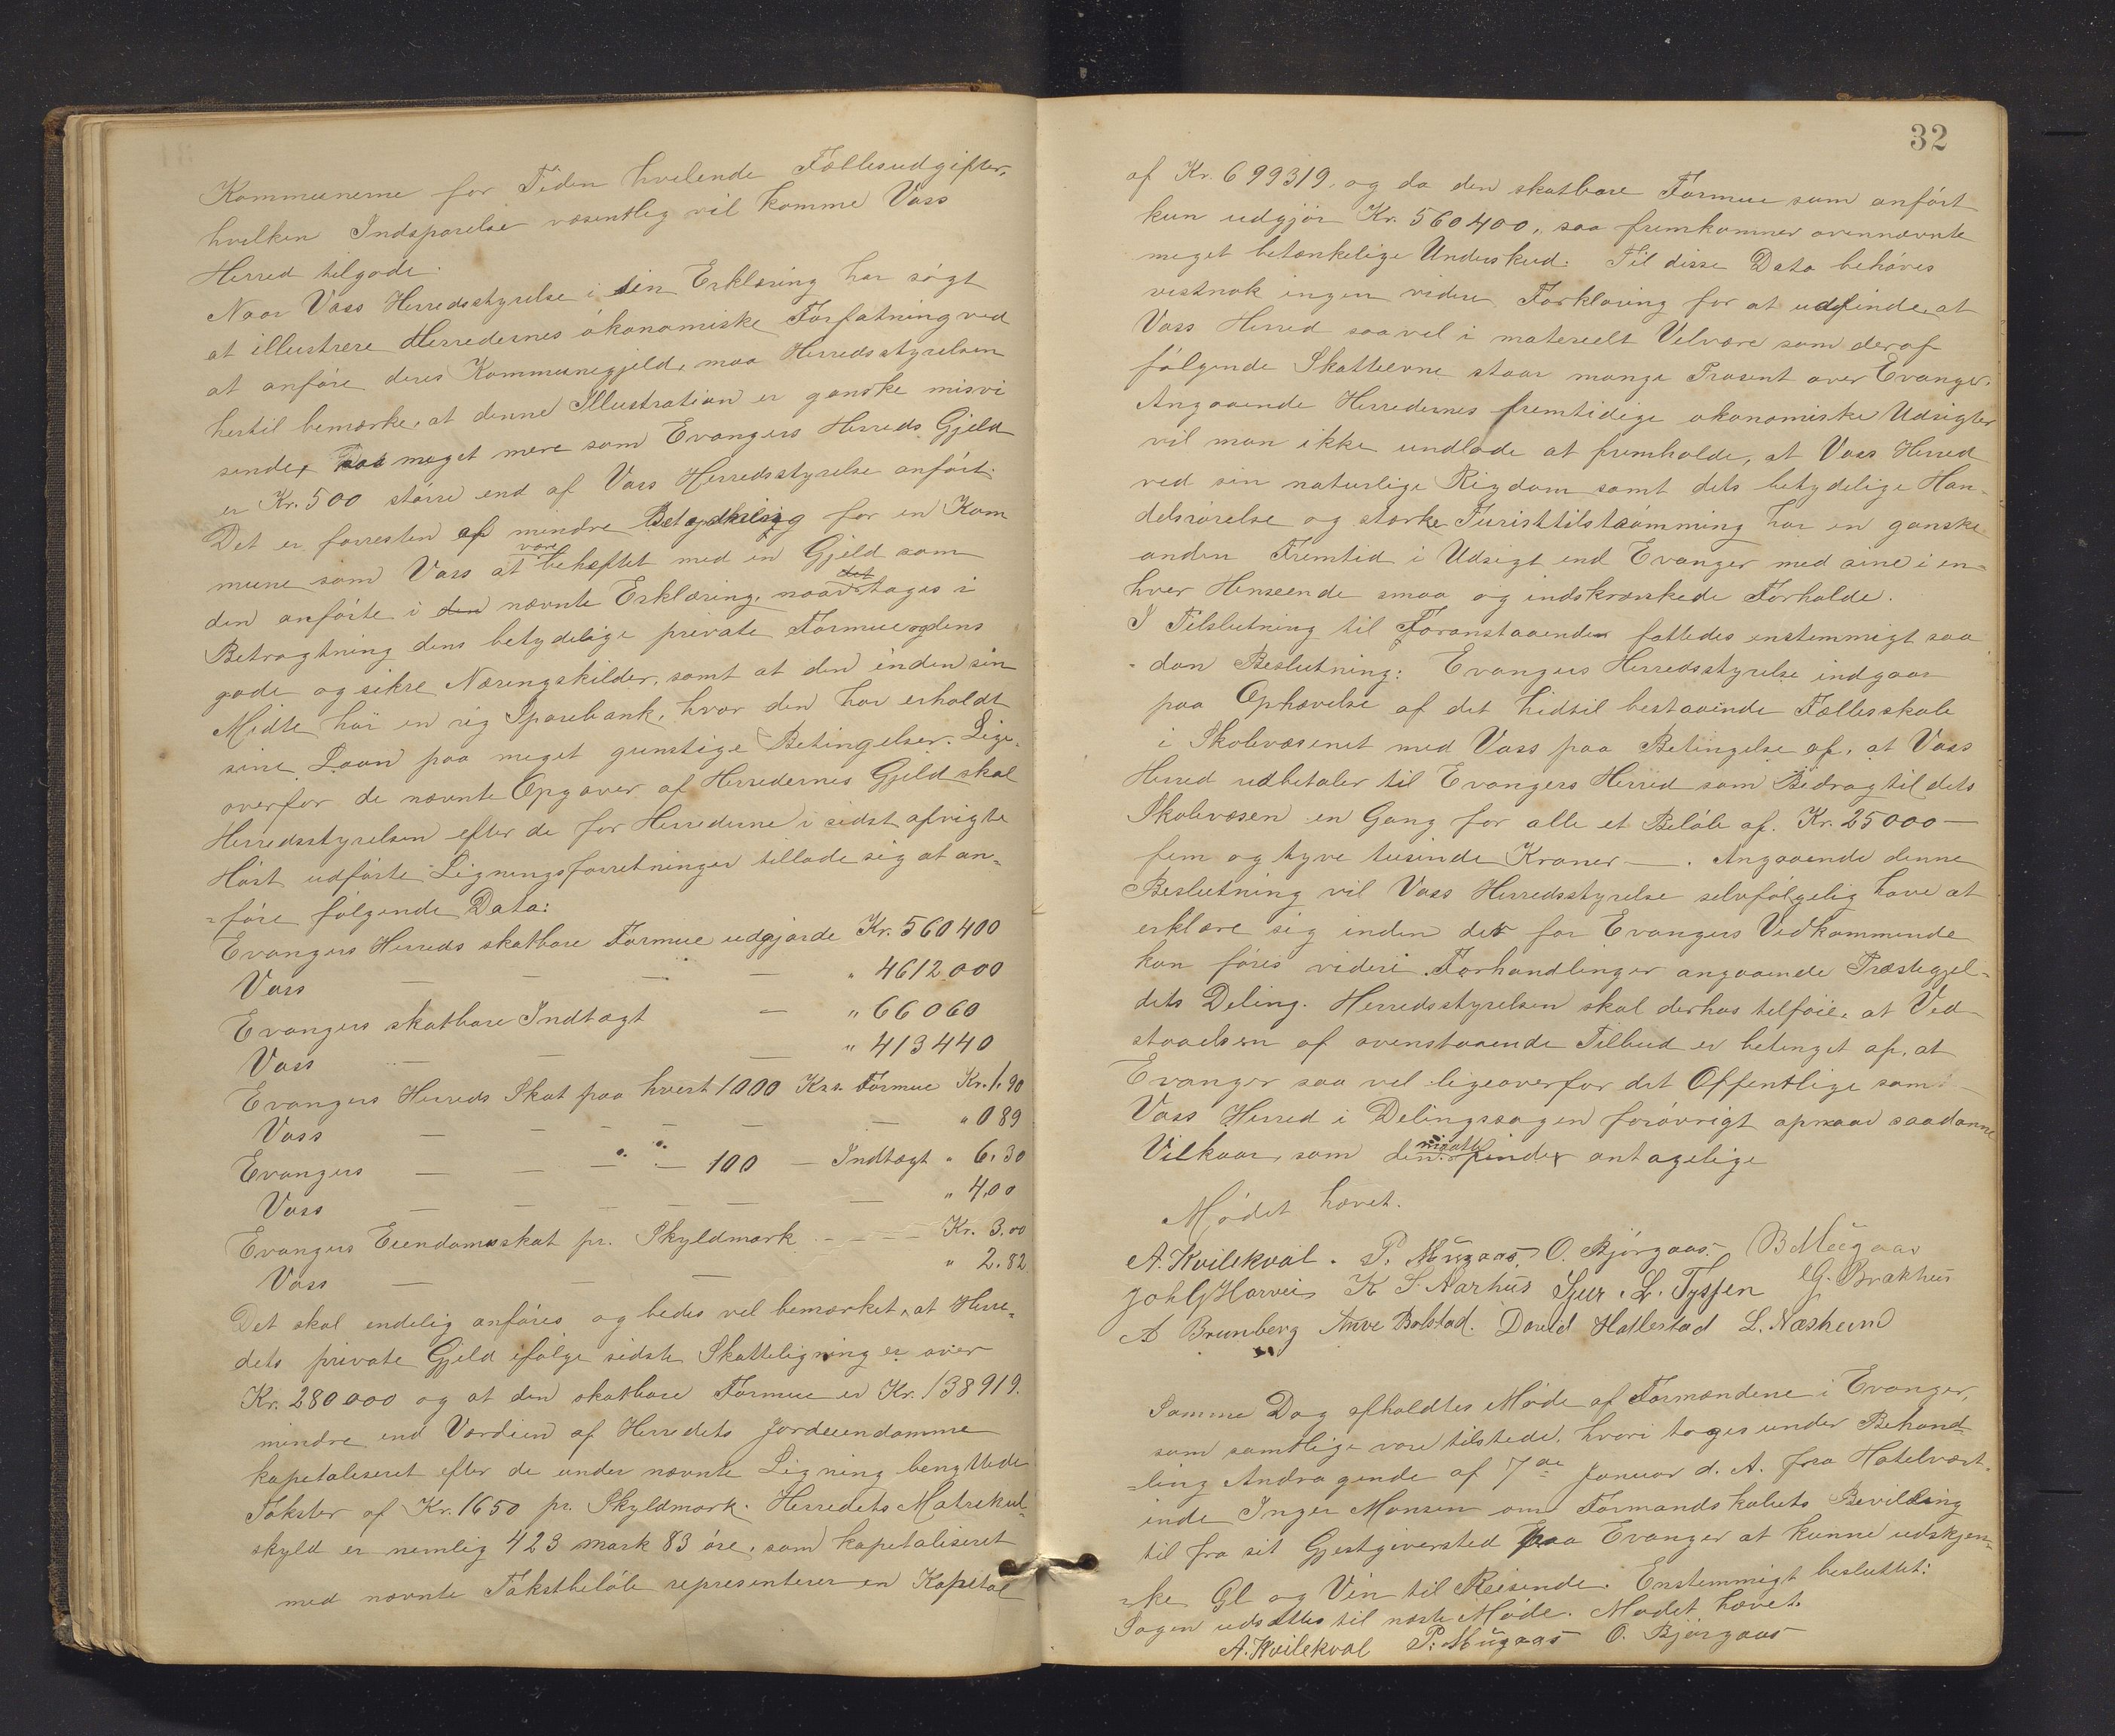 Kommunerne for Tiden hvilende Fællesudgifter,
hvilken Indsparelse væsentlig vil komme Vass
Herred tilgode.
Naar Vass Herredsstyrelse i sin Erklæring har søgt
at illustrere Herredernes økonomiske Forfatning ved
at anføre deres Kommunegjeld, maa Herredsstyrelsen
hertil bemærke, at denne Illustration er ganske misvi
sende, saa meget mere som Evangers Herreds Gjeld
er Kr. 500 større end af Vass Herredsstyrelse anført.
Det er forresten af mindre Betydning for en Kom
mune som Vass at være beheftet med en Gjeld som
den anførte i den nævnte Erklæring, naar det tages i
Betragtning dens betydelige private Formue og dens
gode og sikre Næringskilder, samt at den inden sin
Midte har en rig Sparebank, hvor den har erholdt
sine Laan paa meget gunstige Betingelser. Lige-
overfor de nævnte Opgaver af Herredernes Gjeld skal
Herredsstyrelsen efter de for Herrederne i sidst afvigte
Høst udførte Ligningsforretninger tillade sig at an=
=føre følgende Data:
Evangers Herreds skatbare Formue udgjorde Kr. 560400
Vass — — — " 4612000
Evangers skatbare Indtægt — " 66060
Vass — — — " 413440
Evangers Herreds Skat paa hvert 1000 Krs. Formue Kr. 1,90
Vass — — — — — — " 0 89
Evangers — — — " — 100 — Indtægt " 6.30
Vass — — — — — — " 4,00
Evangers Eiendomsskat pr. Skyldmark - - - - Kr. 3.00
Vass — — — " 2.82
Det skal endelig anføres og bedes vel bemærket, at Herre=
dets private Gjeld ifølge sidste Skatteligning er over
Kr. 280000 og at den skatbare Formue er Kr. 138919.
mindre end Værdien af Herredets Jordeiendomme
kapitaliseret efter de under nævnte Ligning benyttede
Takster af Kr. 1650 pr. Skyldmark. Herredets Matrikul=
skyld er nemlig 423 mark 83 øre, som kapitaliseret
med nævnte Takstbeløb representerer en Kapital
32
af Kr. 699319, og da den skatbare Formue som anført
kun udgjør Kr. 560400, saa fremkommer ovennævnte
meget betænkelige Underskud. Til disse Data behøves
vistnok ingen videre Forklaring for at udfinde, at
Vass Herred saavel i materielt Velvære som deraf
følgende Skatteevne staar mange Prosent over Evanger.
Angaaende Herredernes fremtidige økonomiske Udsigter
vil man ikke undlade at fremholde, at Vass Herred
ved sin naturlige Rigdom samt dets betydelige Han-
delsrørelse og stærke Turisttilstrømming har en ganske
anden Fremtid i Udsigt end Evanger med sine i en=
hver Henseende smaa og indskrænkede Forholde.
I Tilslutning til Foranstaaende fattedes enstemmigt saa
-dan Beslutning: Evangers Herredsstyrelse indgaar
paa Ophævelse af det hidtil bestaaende Fællesskab
i Skolevæsenet med Vass paa Betingelse af, at Vass
Herred udbetaler til Evangers Herred som Bidrag til dets
Skolevæsen en Gang for alle et Beløb af Kr. 25000—
fem og tyve tusinde Kroner —. Angaaende denne
Beslutning vil Vass Herredsstyrelse selvfølgelig have at
erklære sig inden det for Evangers Vedkommende
kan føres videre Forhandlinger angaaende Præstegjel=
dets Deling. Herredsstyrelsen skal derhos tilføie, at Ved-
staaelsen af ovenstaaende Tilbud er betinget af, at
Evanger saa vel ligeoverfor det Offentlige som
Vass Herred i Delingssagen forøvrigt opnaar saadanne
Vilkaar, som den maatte finde antagelige
Mødet hævet.
A. Kvilekval. P. Mügaas, O. Bjørgaas. B Mügaas
Joh G Horvei K S. Aarhus Sjur. L. Tyssen G. Brakhus
A Brunberg Anve Bolstad. David Hallestad L. Næsheim
Samme Dag afholdtes Møde af Formændene i Evanger,
som samtlige vare tilstede, hvori toges under Behand=
=ling Andragende af 7de Januar d. A. fra Hotelvært-
inde Inger Monsen om Formandskabets Bevilling
til fra sit Gjestgiversted paa Evanger at kunne udskjen=
=ke Øl og Vin til Reisende. Enstemmigt besluttet:
Sagen udsættes til næste Møde. Mødet hævet.
A. Kvilekval P. Mügaas O. Bjørgaas